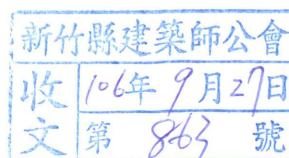 新竹縣建築師公會
收文
106年9月27日
第863號